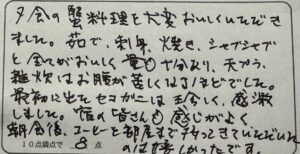 夕食の蟹料理を大変おいしくいただき
ました。茹で、刺身、焼き、シャブシャブ
と全てがおいしく量も十分あり、天プラ、
雑炊はお腹が苦しくなるほどでした。
最初に出たセコガニは珍しく、感激
しました。宿の皆さんも感じがよく
朝食後、コーヒーを部屋まで持っていただいた
のは嬉しかったです。
10点満点で 8 点